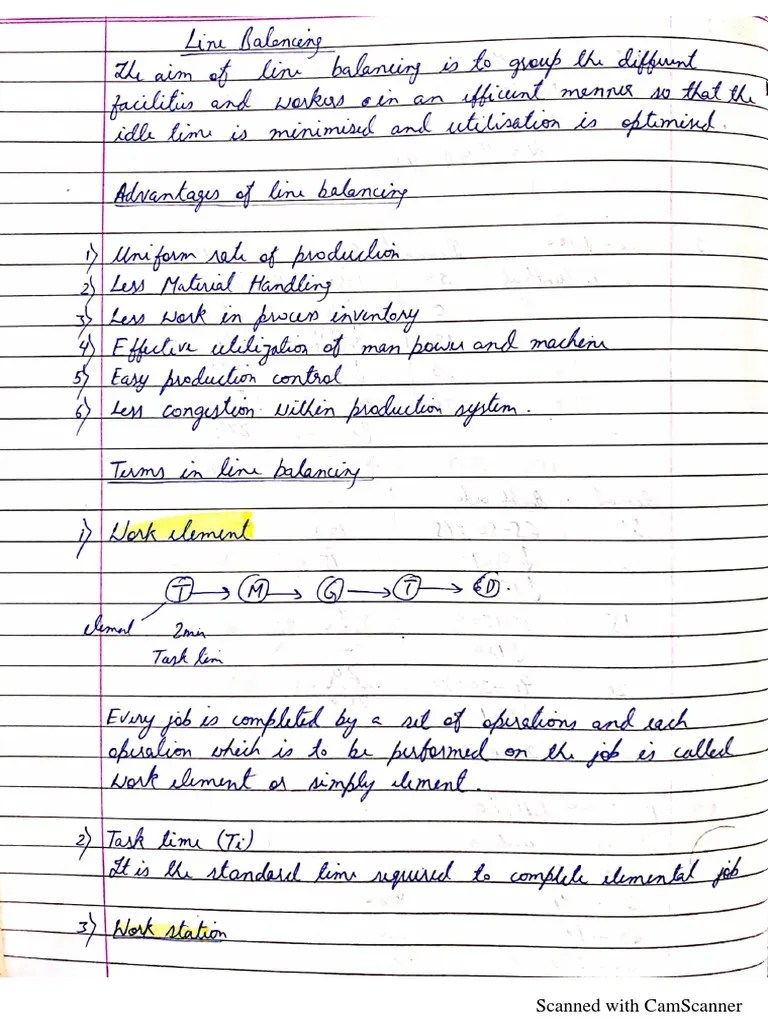 Line Balancing
The aim of line balancing is to group the different
facilities and workers in an efficient manner so that the
idle time is minimised and utilisation is optimised.
Advantages of line balancing
1) Uniform rate of production
2) Less Material Handling
3) Less work in process inventory
4) Effective utilization of man power and machine
5) Easy production control
6) Less congestion within production system.
Terms in line balancing
1) Work element
T → M → G → T → D.
element 2min
Task tim
Every job is completed by a set of operations and each
operation which is to be performed on the job is called
work element or simply element.
2) Task time (Ti)
It is the standard time required to complete elemental job
3) Work station
Scanned with CamScanner